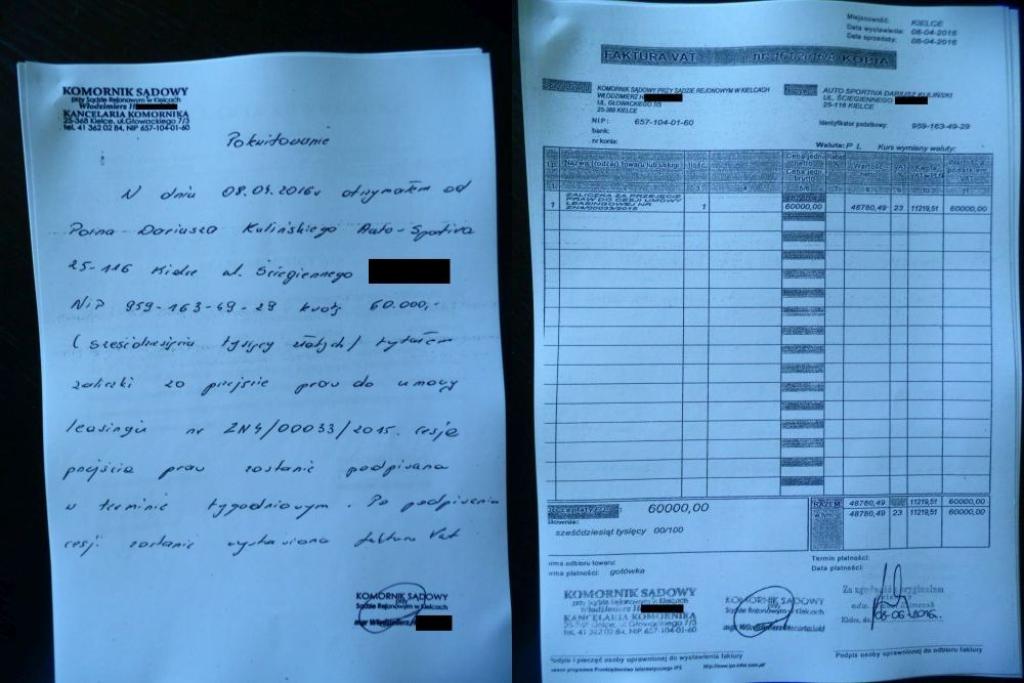 KOMORNIK SĄDOWY
przy Sądzie Rejonowym w Kielcach
Włodzimierz H
KANCELARIA KOMORNIKA
25-368 Kielce, ul.Głowackiego 7/3
tel. 41 362 02 84, NIP 657-104-01-60
Pokwitowanie
W dniu 08.04.2016r otrzymałem od
Pana Dariusza Kulińskiego Auto-Sportiva
25-116 Kielce ul. Ściegiennego
NIP 959-163-49-29 kwotę 60.000,-
(sześćdziesiąt tysięcy złotych) tytułem
zaliczki za przejście praw do umowy
leasingu nr ZN4/00033/2015. cesja
przejścia praw zostanie podpisana
w terminie tygodniowym. Po podpisaniu
cesji zostanie wystawiona faktura Vat
KOMORNIK SĄDOWY
przy
Sądzie Rejonowym w Kielcach
mgr Włodzimierz
Miejscowość: KIELCE
Data wystawienia: 08-04-2016
Data sprzedaży: 08-04-2016
FAKTURA VAT KOPIA
KOMORNIK SĄDOWY PRZY SĄDZIE REJONOWYM W KIELCACH
WŁODZIMIERZ H
UL. GŁOWACKIEGO
25-368 KIELCE
NIP: 657-104-01-60
bank:
nr konta:
AUTO SPORTIVA DARIUSZ KULIŃSKI
UL. ŚCIEGIENNEGO
25-116 KIELCE
Identyfikator podatkowy: 959-163-49-29
Waluta: P L Kurs wymiany waluty:
Nazwa (rodzaj) towaru lub usługi Cena jedn. netto Cena jedn. brutto
1 ZALICZKA ZA PRZEJĘCIE PRAW DO CESJI UMOWY LEASINGOWEJ NR ZN4/00033/2015 1 60000,00 48780,49 23 11219,51 60000,00
RAZEM 48780,49 11219,51 60000,00
48780,49 23 11219,51 60000,00
60000,00
słownie:
sześćdziesiąt tysięcy 00/100
rma odbioru towaru:
rma płatności: gotówka
Termin płatności:
Data płatności:
KOMORNIK SĄDOWY
przy Sądzie Rejonowym w Kielcach
Włodzimierz
KANCELARIA KOMORNIKA
tel. 41 362 02 84, NIP 657-104-01-60
KOMORNIK SĄDOWY
przy
Sądzie Rejonowym w Kielcach
Za zgodność z oryginałem
08-06-2016
odpis i pieczęć osoby uprawnionej do wystawienia faktury
Podpis osoby uprawnionej do odbioru faktury